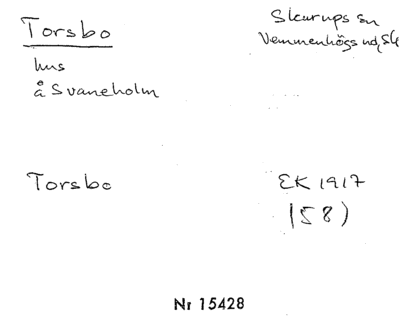 Torsbo
Skurups sn
Vemmenhögs hd, Sk
hus
å Svaneholm
Torsbo
EK 1917
(58)
Nr 15428